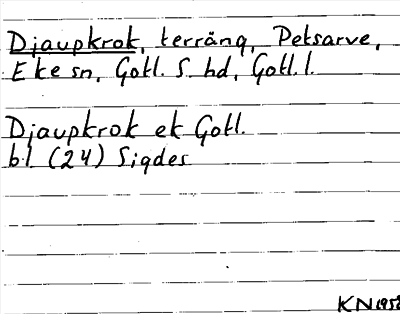 Djaupkrok, terräng, Petsarve,
Eke sn, Gotl. S. hd, Gotl. l.
Djaupkrok ek Gotl.
bl (24) Sigdes
KN 1958